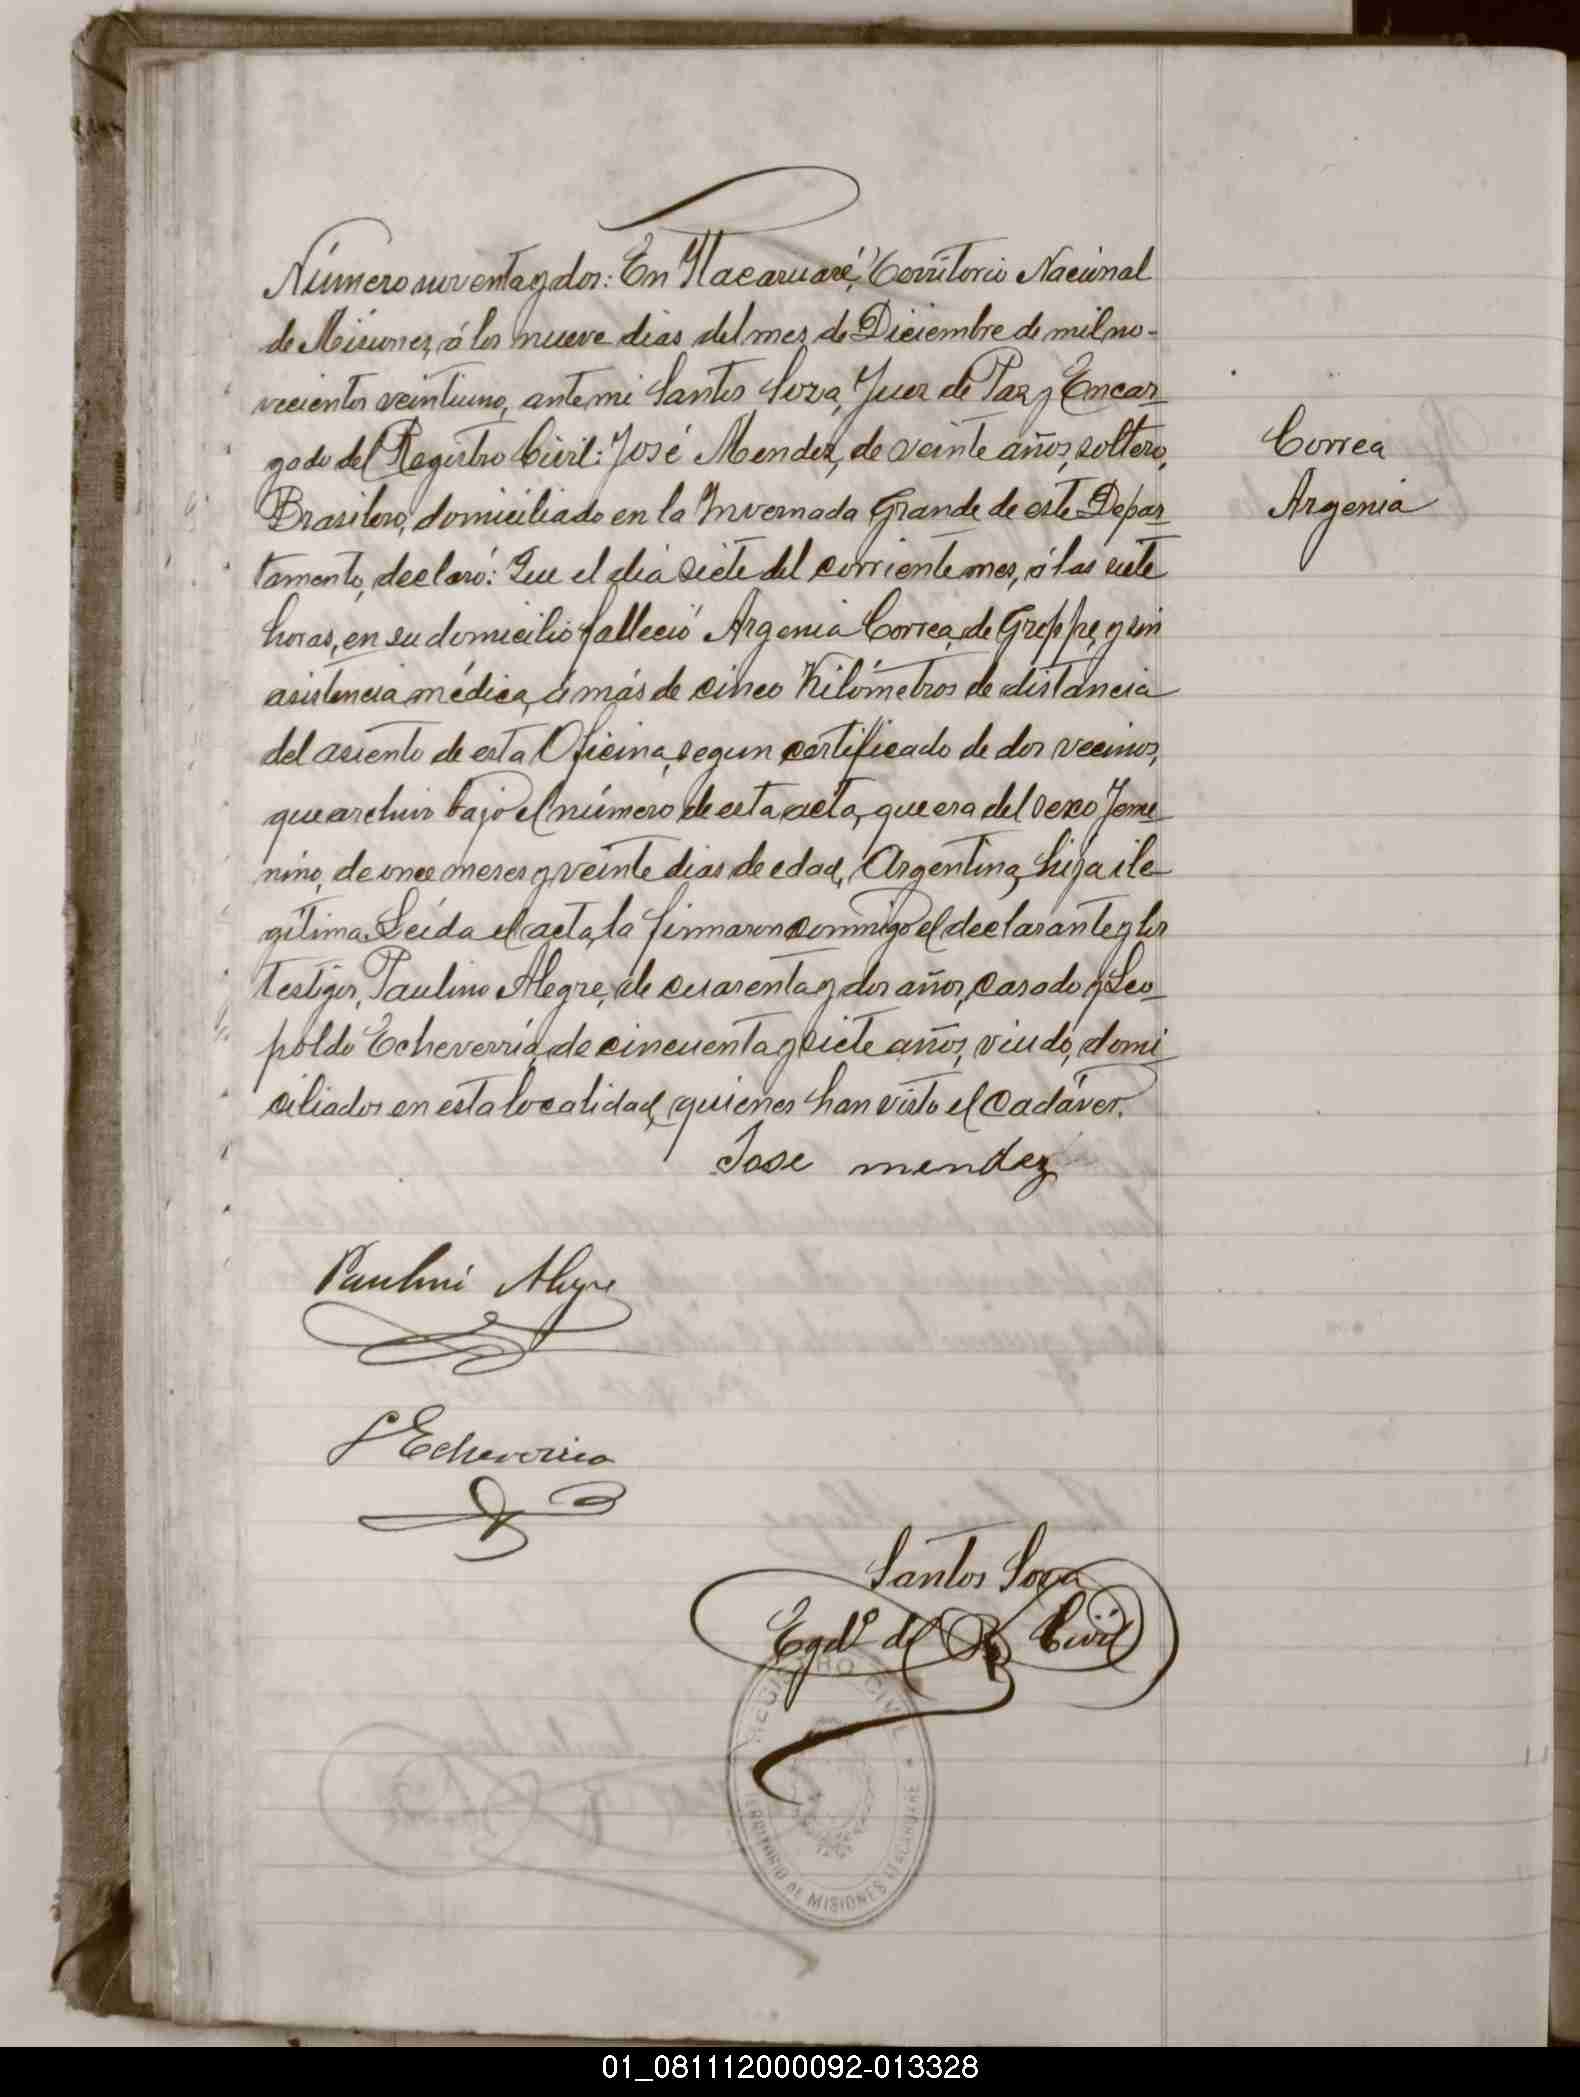 Número noventa y dos: En Itacaruaré, Territorio Nacional
de Misiones, á los nueve dias del mes de Diciembre de mil no-
vecientos veintiuno, ante mi Santos Soza, Juez de Paz y Encar-
gado del Registro Civil: José Mendez, de veinte años, soltero,
Brasilero, domiciliado en la Invernada Grande de este Depar-
tamento, declaró: Que el dia siete del corriente mes, á las siete
horas, en su domicilio falleció Argenia Correa, de Greppe, y sin
asistencia médica, á más de cinco Kilómetros de distancia
del asiento de esta Oficina, segun certificado de dos vecinos,
que archivo bajo el número de esta acta, que era del sexo feme-
nino, de once meses y veinte dias de edad, Argentina, hija ile-
gítima. Leída el acta, la firmaron conmigo el declarante y los
testigos, Paulino Alegre, de cuarenta y dos años, casado y Leo-
poldo Echeverría, de cincuenta y siete años, viudo, domi-
ciliados en esta localidad, quienes han visto el cadáver.
Correa
Argenia
Jose mendez
Paulino Alegre
L Echeverria
Santos Soza
Egdo. del R. Civil
REGISTRO CIVIL
TERRITORIO DE MISIONES ITACARUARE
01_081112000092-013328